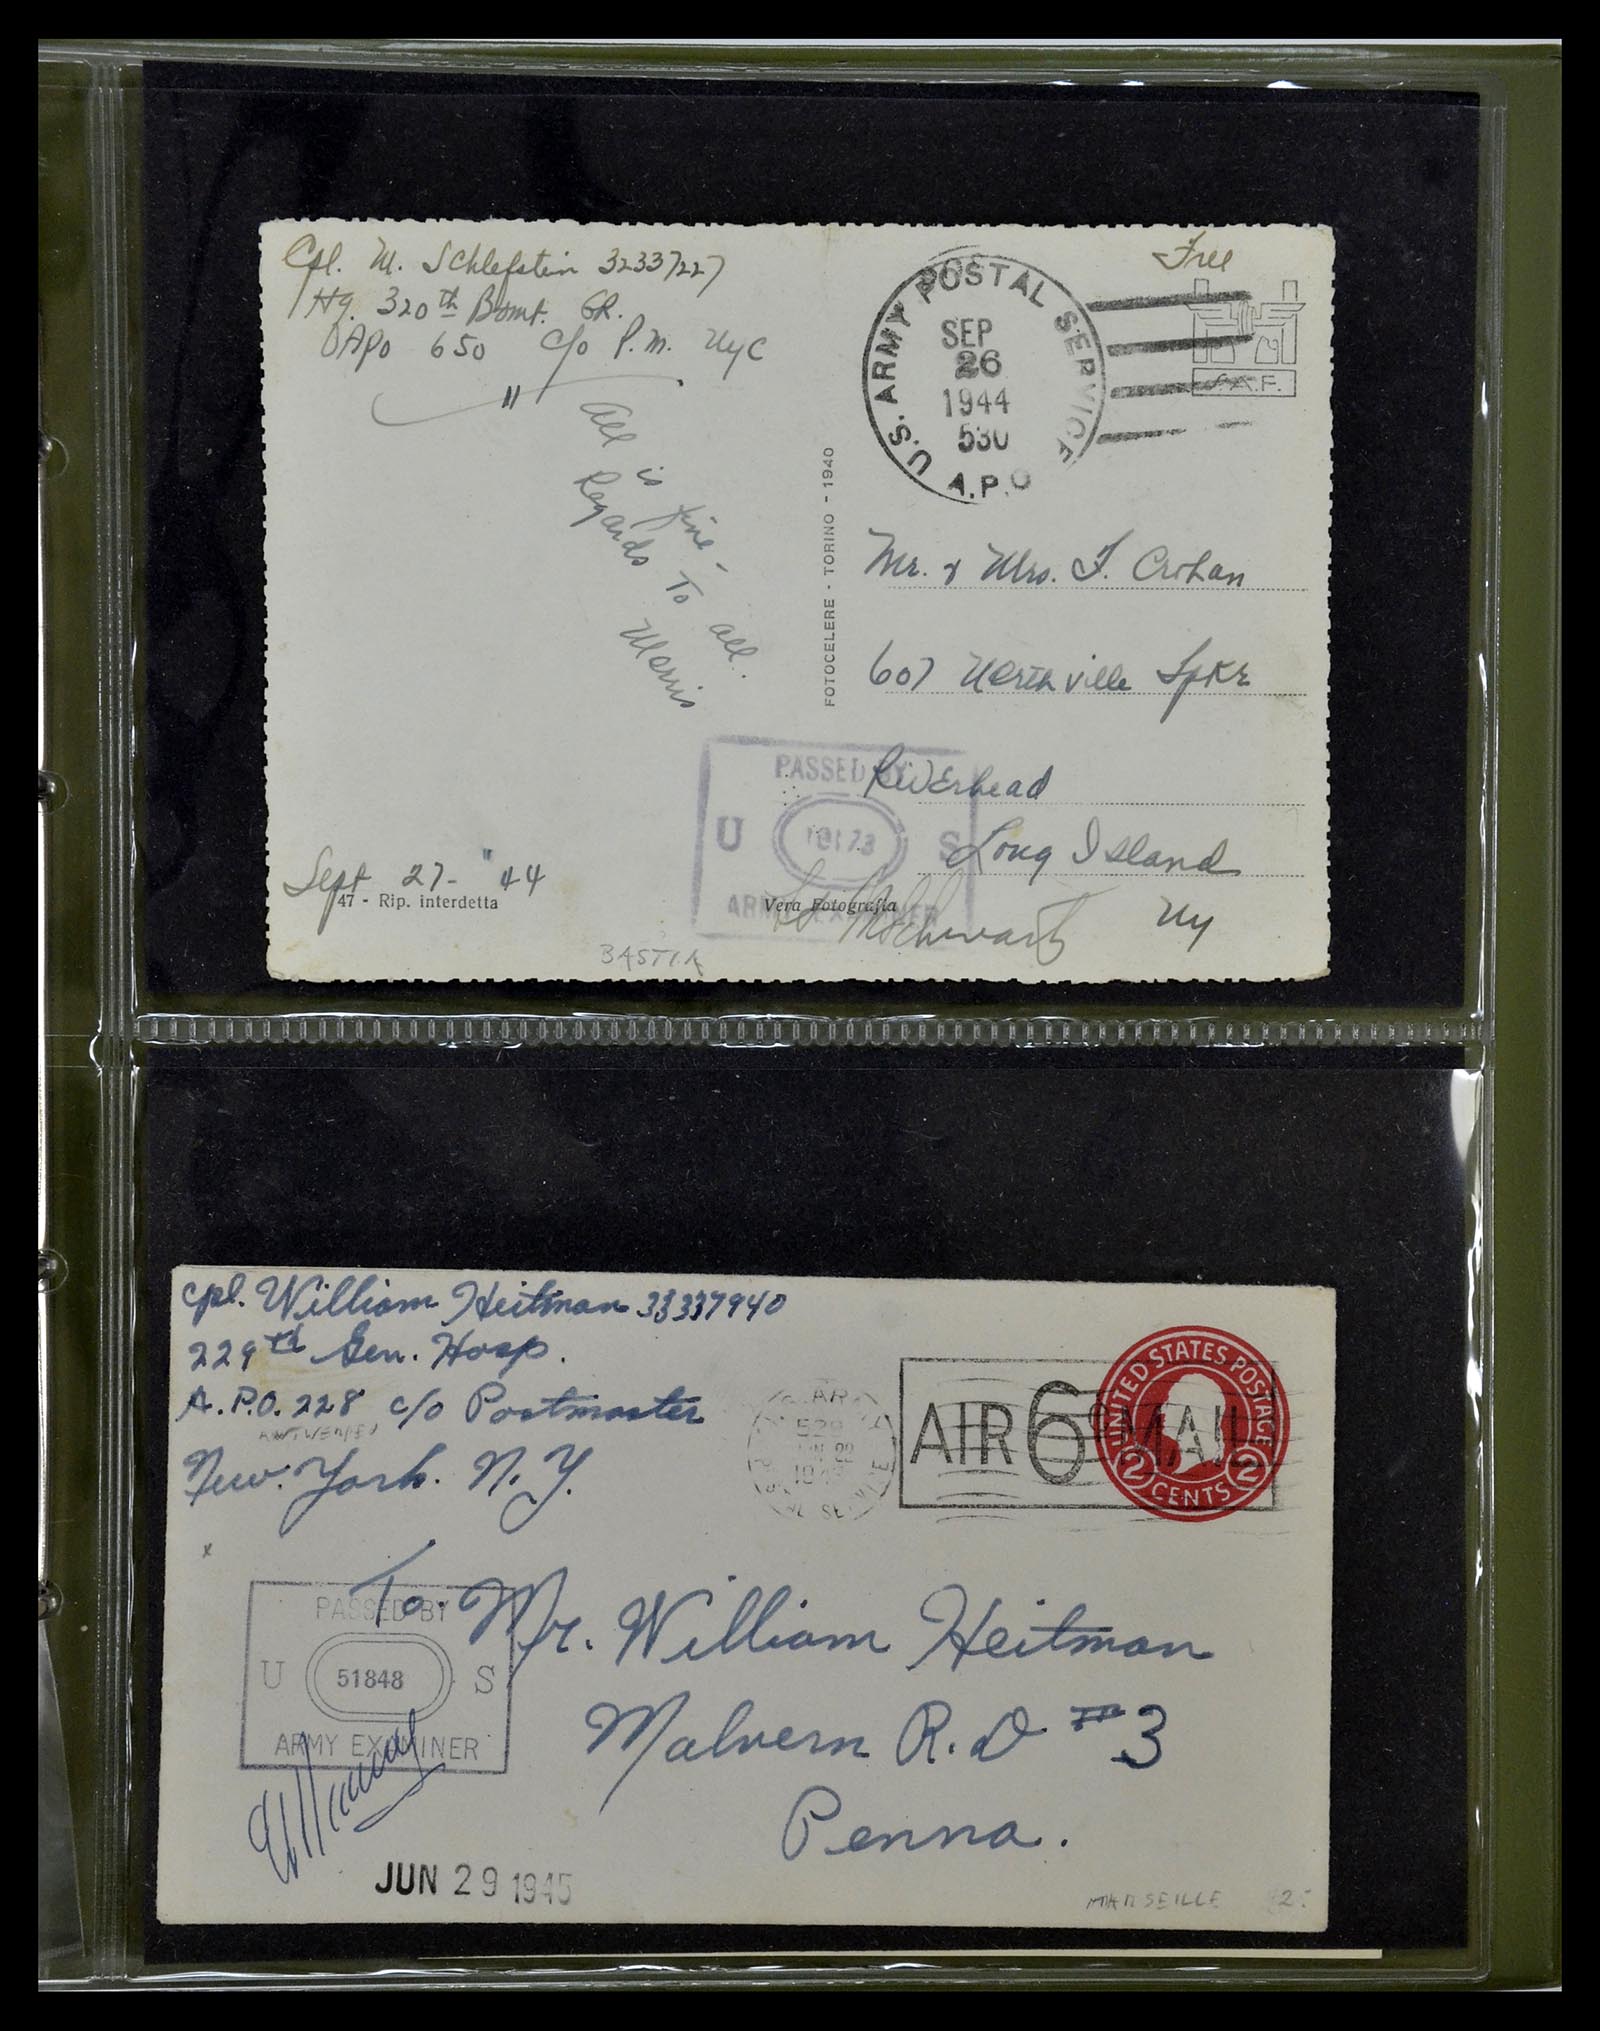 Cpl. M. Schlefstein 32337227
Hq. 320th Bomt. GR.
APO 650 c/o P.M. NYC
Free
U.S. ARMY POSTAL SERVICE
SEP
26
1944
530
A.P.O
S.A.F.
All is fine -
Regards To all.
Morris
FOTOCELERE - TORINO - 1940
Mr. & Mrs. F. Crohan
607 Northville Tpke
Riverhead
Long Island
NY
PASSED BY
U S
ARMY EXAMINER
Sept 27- "44
47 - Rip. interdetta
Vera Fotografia
BASTIA
Cpl. William Heitman 33337940
229th Gen. Hosp.
A.P.O. 228 c/o Postmaster
ANTWERPEN
New York. N.Y.
AIR 6c MAIL
UNITED STATES POSTAGE
2 2
CENTS
To. Mr. William Heitman
Malvern R.D #3
Penna.
PASSED BY
U 51848 S
ARMY EXAMINER
JUN 29 1945
MARSEILLE